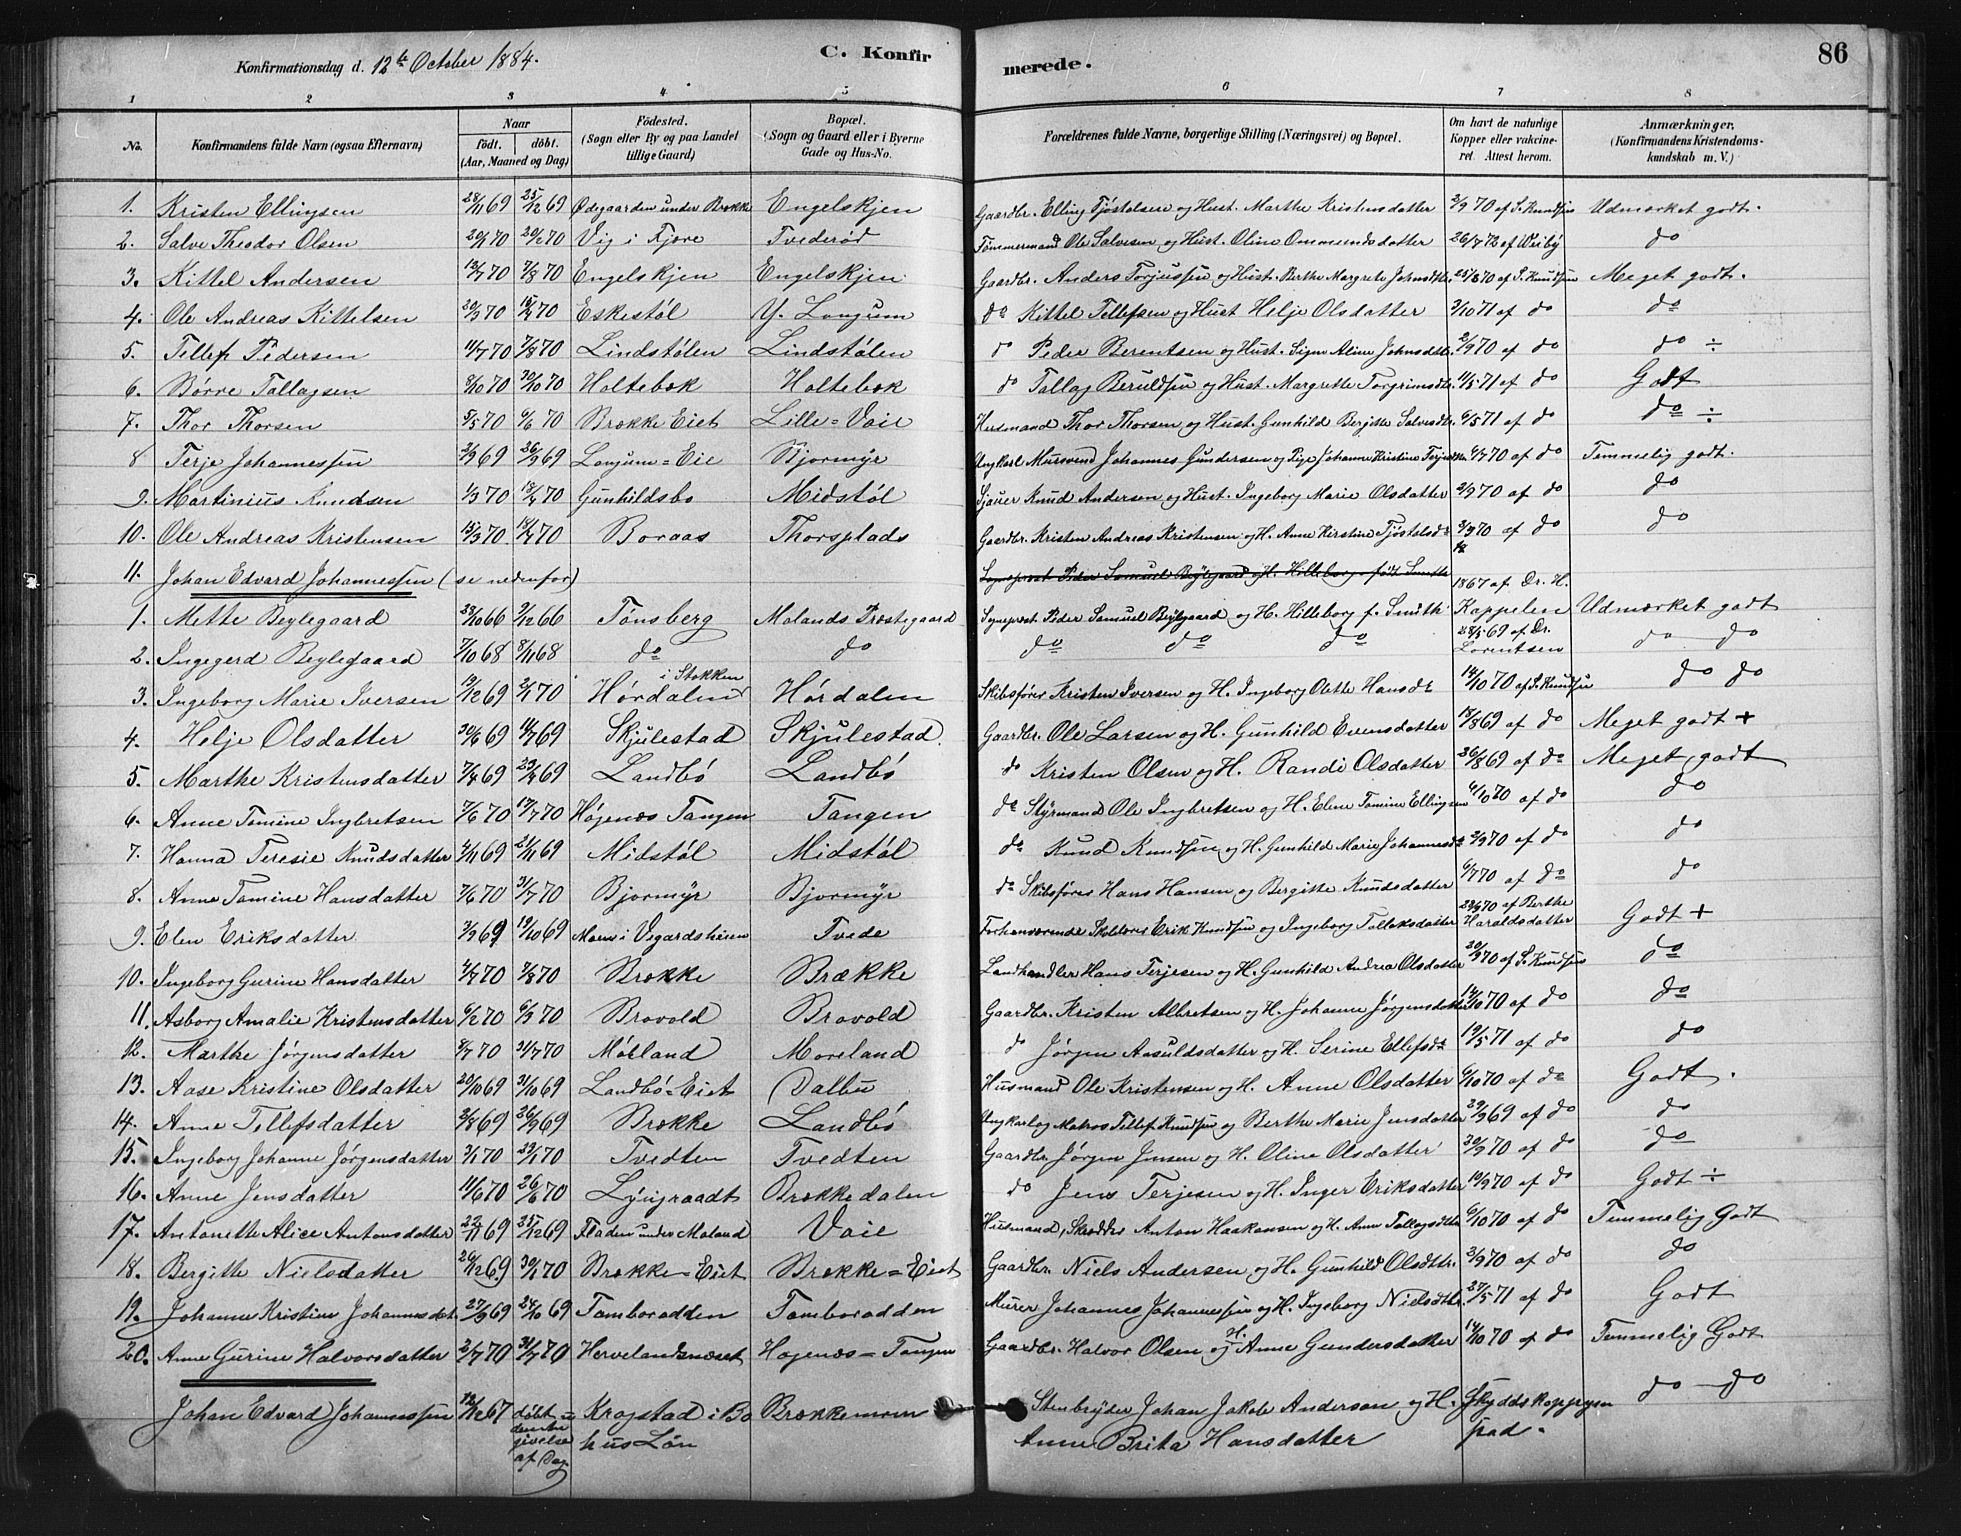 Konfirmationsdag d. 12te October 1884. C. Konfirmerede. 86
1 2 3 4 5 6 7 8
No. Konfirmandens fulde Navn (ogsaa Efternavn) Naar født. døbt. (Aar, Maaned og Dag) Fødested. (Sogn eller By og paa Landet tillige Gaard) Bopæl. (Sogn og Gaard eller i Byerne Gade og Hus-No. Forældrenes fulde Navne, borgerlige Stilling (Næringsvei) og Bopæl. Om havt de naturlige Kopper eller vakcineret Attest herom. Anmærkninger. (Konfirmandens Kristendomskundskab m. V.)
1. Kristen Ellingsen 28/11 69 25/12 69 Ødegaarden under Brække Engelskjen Gaardbr. Elling Tjøstolsen og Hust. Marthe Kristensdatter 2/9 70 af S. Knudsen Udmærket godt.
2. Salve Theodor Olsen 20/1 70 20/2 70 Vig i Fjære Tvederød Tømmermand Ole Salvesen og Hust. Oline Ommundsdatter 26/7 72 af do
3. Kittel Andersen 13/7 70 7/8 70 Engelskjen Engelskjen Gaardbr. Anders Torjussen og Hust. Berthe Margrete Johnsdtr. 25/8 70 af S. Knudsen Meget godt.
4. Ole Andreas Kittelsen 20/3 70 18/4 70 Eskestøl Y. Longum do Kittel Tellefsen og Hust Helje Olsdatter 2/10 71 af do do
5. Tellef Pedersen 11/7 70 7/8 70 Lindstølen Lindstølen do Peder Berentsen og Hust. Signe Aline Johnsdtr. 2/9 70 af do do ÷
6. Børre Tallagsen 8/10 70 30/10 70 Holtebæk Holtebæk do Tallag Beruldsen og Hust. Margrethe Torgrimsdtr. 11/5 71 af do Godt
7. Thor Thorsen 5/5 70 6/6 70 Brække Eiet Lille=Vaie Husmand Thor Thorsen og Hust. Gunhild Bergitte Salvesdtr. 6/5 71 af do do ÷
8 Terje Johannessen 2/9 69 26/9 69 Longum=Eie Bjormyr Ungkarl Mursvend Johannes Gundersen og Pige Johanne Kristine 6/7 70 af do Temmelig godt.
9. Martinius Knudsen 1/3 70 18/4 70 Gunhildsbo Midstøl Sjauer Knud Andersen og Hust. Ingeborg Marie Olsdatter 2/9 70 af do do
10. Ole Andreas Kristensen 15/3 70. 18/4 70 Boraas Thorsplads Gaardbr. Kristen Andreas Kristensen og H. Anne Kirstine Tjøstolsd. 3/9 70 af do do
11. Johan Edvard Johannessen (se nedenfor) Sogneprest Peder Samuel Beylegaard og H. Hilleborg født Smith
1. Mette Beylegaard 28/10 66 2/12 66 Tønsberg Molands Præstegaard Sogneprest Peder Samuel Beylegaard og H. Hilleborg f. Smith 1867 af Dr. H. Kappelen Udmærket godt
2. Ingegerd Beylegaard 7/10 68 8/11 68 do do do do do 28/5 69 af Dr. Lorentsen do do
3. Ingeborg Marie Iversen 19/12 69 2/1 70 Hørdalen i Stokken Hørdalen Skibsfører Kristen Iversen og H. Ingeborg Olette Hansd. 14/10 70 af S. Knudsen do do
4. Helje Olsdatter 30/6 69 11/7 69 Skjulestad Skjulestad Gaardbr. Ole Larsen og H. Gunhild Evensdatter 18/8 69 af do Meget godt +
5. Marthe Kristensdatter 7/4 69 25/4 69 Landbø Landbø do Kristen Olsen og H. Randi Olsdatter 26/8 69 af do Meget godt
6. Anne Tomine Ingbretsen 7/6 70 17/7 70 Høgenæs Tangen Tangen do Styrmand Ole Ingbretsen og H. Elene Tomine Ellingsen 6/10 70 af do do
7. Hanna Teresie Knudsdatter 4/11 69 21/11 69 Midstøl Midstøl do Knud Knudsen og H. Gunhild Marie Johannesd. 2/9 70 af do do
8. Anne Tomine Hansdatter 7/6 70 31/7 70 Bjormyr Bjormyr do Skibsfører Hans Hansen og Bergitte Knudsdatter 6/7 70 af do do
9. Elen Eriksdatter 7/9 69 19/10 69 Moen i Vegardsheien Tvede Forhenværende Erik Knudsen og Ingeborg Tallaksdatter 23/9 70 af Berthe Haraldsdatter Godt +
10. Ingeborg Gurine Hansdatter 4/7 70 7/8 70 Brække Brække Landhandler Hans Terjesen og H. Gunhild Andrea Olsdatter 20/9 70 af S. Knudsen do
11. Asborg Amalie Kristensdatter 6/2 70 6/3 70 Brovold Brovold Gaardbr. Kristen Albretsen og H. Johanne Jørgensdatter 14/10 70 af do do
12. Marthe Jørgensdatter 8/7 70 31/7 70 Mølland Moreland do Jørgen Aasuldsdatter og H. Serine Ellefsd. 19/5 71 af do do
13. Aase Kristine Olsdatter 20/10 69 31/10 69 Landbø=Eiet Dalbu Husmand Ole Kristensen og H. Anne Olsdatter 6/10 70 af do Godt.
14. Anne Tellefsdatter 2/8 69 26/9 69 Brække Landbø Ungkarl og Matros Tellef Knudsen og Berthe Marie Jensdatter 29/9 69 af do do
15. Ingeborg Johanne Jørgensdatter 2/1 70 23/1 70 Tvedten Tvedten Gaardbr. Jørgen Jensen og H. Oline Olsdatter 30/9 70 af do do
16. Anne Jensdatter 11/6 70 26/6 70 Lyngraadt Brækkedalen do Jens Terjesen og H. Inger Eriksdatter 19/9 70 af do Godt ÷
17. Antonette Alice Antonsdatter 22/11 69 25/12 69 Fladen under Moland Vaie Husmand, Skrædder Anton Haakonsen og H. Anne Tallagsdtr. 6/10 70 af do Temmelig Godt
18. Bergitte Nielsdatter 26/12 69 30/1 70 Brække=Eiet Brække=Eiet Gaardbr. Niels Andersen og H. Gunhild Olsdtr. 3/9 70 af do do
19. Johanne Kristine Johannesdat. 27/9 69 24/10 69 Tomboradden Tomboradden Murer Johannes Johannessen og H. Ingeborg Nielsdtr. 27/5 71 af do Godt
20. Anne Gurine Halvorsdatter 2/7 70 31/7 70 Hervelandsnæset Høgenæs=Tangen Gaardbr. Halvor Olsen og H. Anne Gundersdatter 14/10 70 af do Temmelig Godt
Johan Edvard Johannessen 12/12 67 døbt = Krogstad i Bo Brækkemoen Stenbryder Johan Jakob Anderson og H. Skyddskoppym do do
af Dag. hus Län Anne Brita Hansdatter pad.